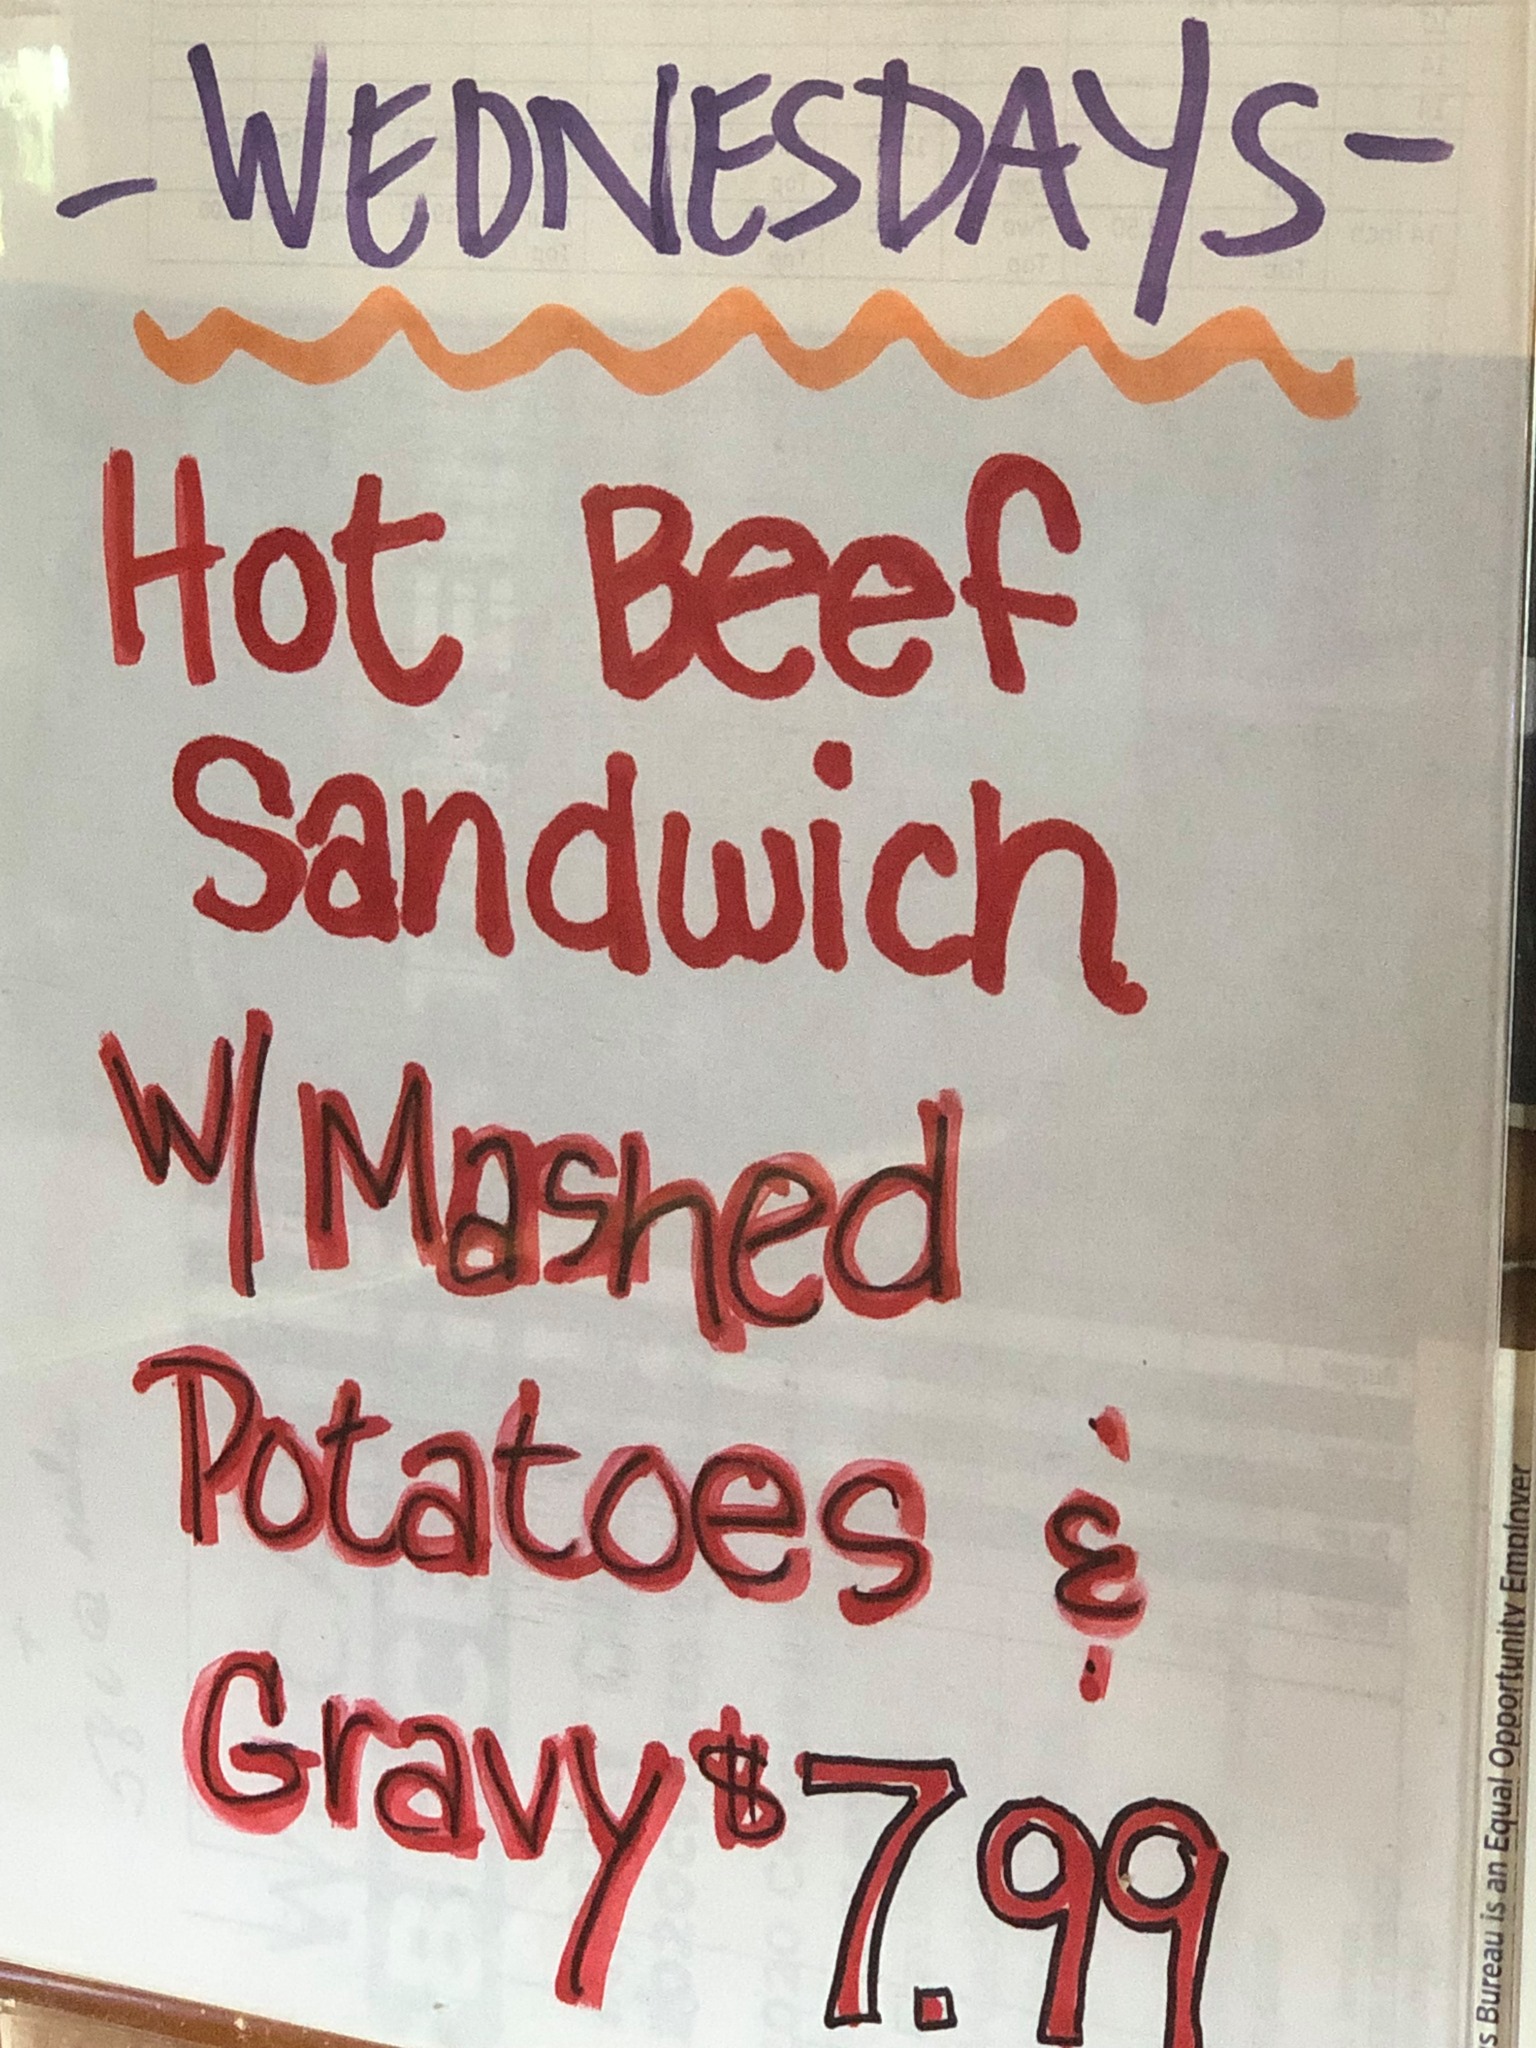 -WEDNESDAYS-
Hot Beef
Sandwich
W/ Mashed
Potatoes &
Gravy $7.99
Bureau is an Equal Opportunity Employer